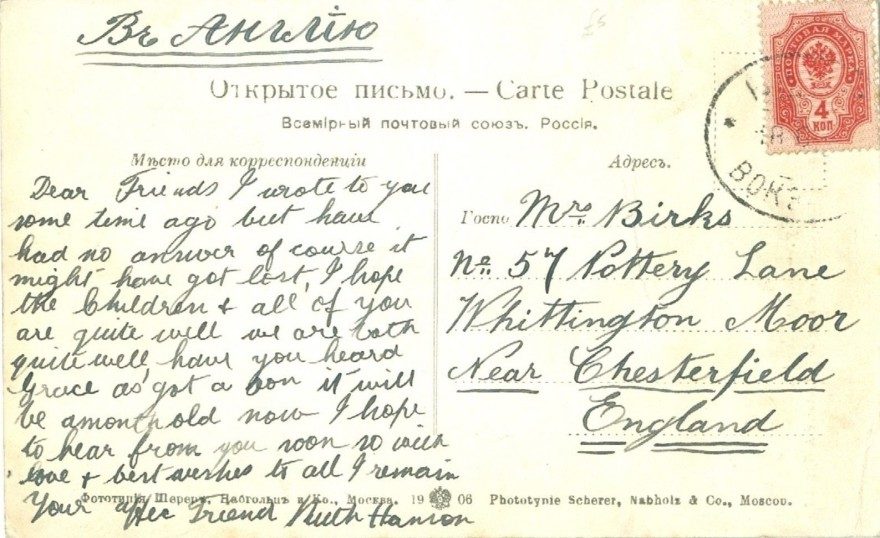 Въ Англію
Открытое письмо. — Carte Postale
Всемірный почтовый союзъ. Россія.
Мѣсто для корреспонденціи
Dear Friends I wrote to you
some time ago but have
had no answer of course it
might have got lost, I hope
the Children & all of you
are quite well we are both
quite well, have you heard
Grace as got a son it will
be a month old now I hope
to hear from you soon so with
love & best wishes to all I remain
Your affec Friend Ruth Hanson
Адресъ.
Госпо Mrs Birks
No. 57 Pottery Lane
Whittington Moor
Near Chesterfield
England
ПОЧТОВАЯ МАРКА
4
КОП
ВОКЗ
Фототипія Шереръ, Набгольцъ и Ко., Москва. 19 06 Phototypie Scherer, Nabholz & Co., Moscou.